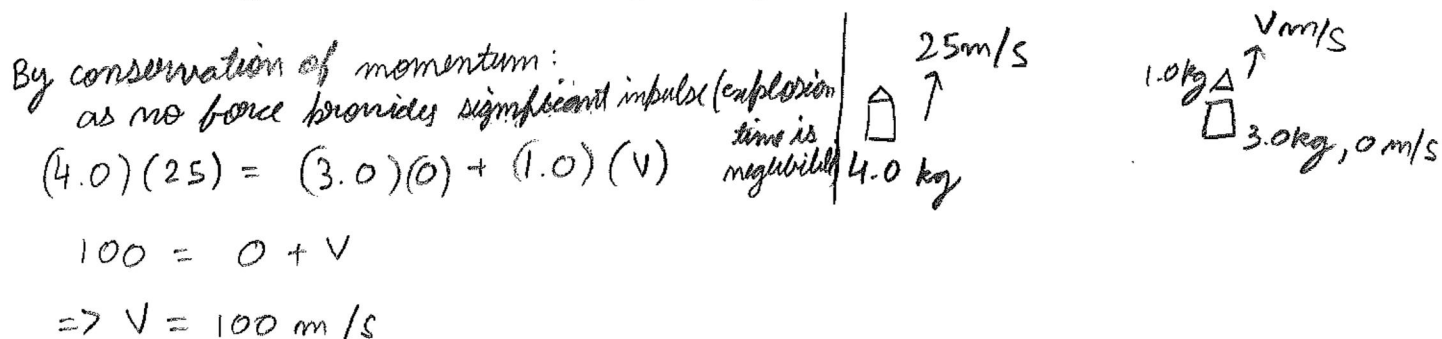 By conservation of momentum:
as no force provides significant impulse (explosion
time is
negligible)
(4.0)(25) = (3.0)(0) + (1.0)(V)
100 = 0 + V
=> V = 100 m/s
25m/s
4.0 kg
Vm/s
1.0kg
3.0kg, 0 m/s